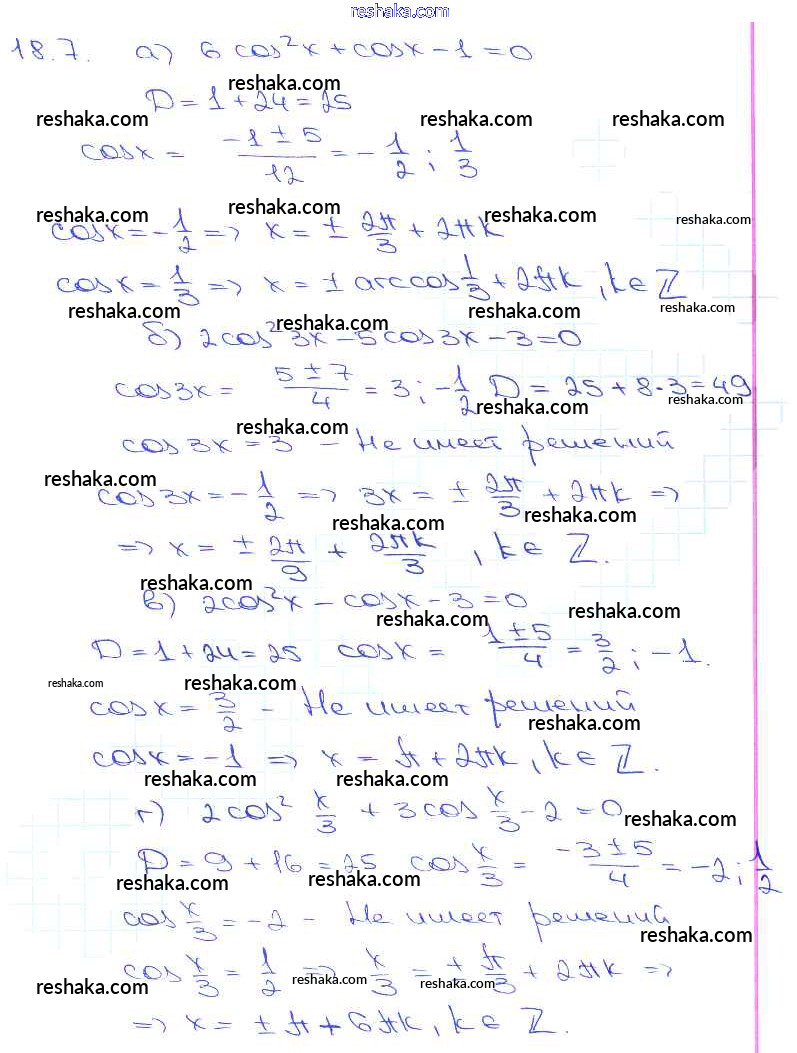 reshaka.com
18.7. а) 6 cos²x + cosx - 1 = 0
reshaka.com
D = 1 + 24 = 25
reshaka.com reshaka.com reshaka.com
cosx = (-1 ± 5)/12 = -1/2 ; 1/3
reshaka.com reshaka.com reshaka.com reshaka.com
cosx = -1/2 => x = ± 2π/3 + 2πk
cosx = 1/3 => x = ± arccos 1/3 + 2πk, k ∈ Z
reshaka.com reshaka.com reshaka.com
б) 2cos²3x - 5cos3x - 3 = 0
cos3x = (5 ± 7)/4 = 3 ; -1/2 D = 25 + 8·3 = 49
reshaka.com reshaka.com
reshaka.com
cos3x = 3 - Не имеет решений
reshaka.com
cos3x = -1/2 => 3x = ± 2π/3 + 2πk =>
reshaka.com reshaka.com
=> x = ± 2π/9 + 2πk/3, k ∈ Z.
reshaka.com
в) 2cos²x - cosx - 3 = 0
reshaka.com reshaka.com
D = 1 + 24 = 25 cosx = (1 ± 5)/4 = 3/2 ; -1.
reshaka.com reshaka.com
cosx = 3/2 - Не имеет решений
reshaka.com
cosx = -1 => x = π + 2πk, k ∈ Z.
reshaka.com reshaka.com
г) 2cos² x/3 + 3cos x/3 - 2 = 0
reshaka.com
D = 9 + 16 = 25 cos x/3 = (-3 ± 5)/4 = -2 ; 1/2
reshaka.com reshaka.com
cos x/3 = -2 - Не имеет решений
reshaka.com
cos x/3 = 1/2 => x/3 = ± π/3 + 2πk =>
reshaka.com reshaka.com reshaka.com
=> x = ± π + 6πk, k ∈ Z.